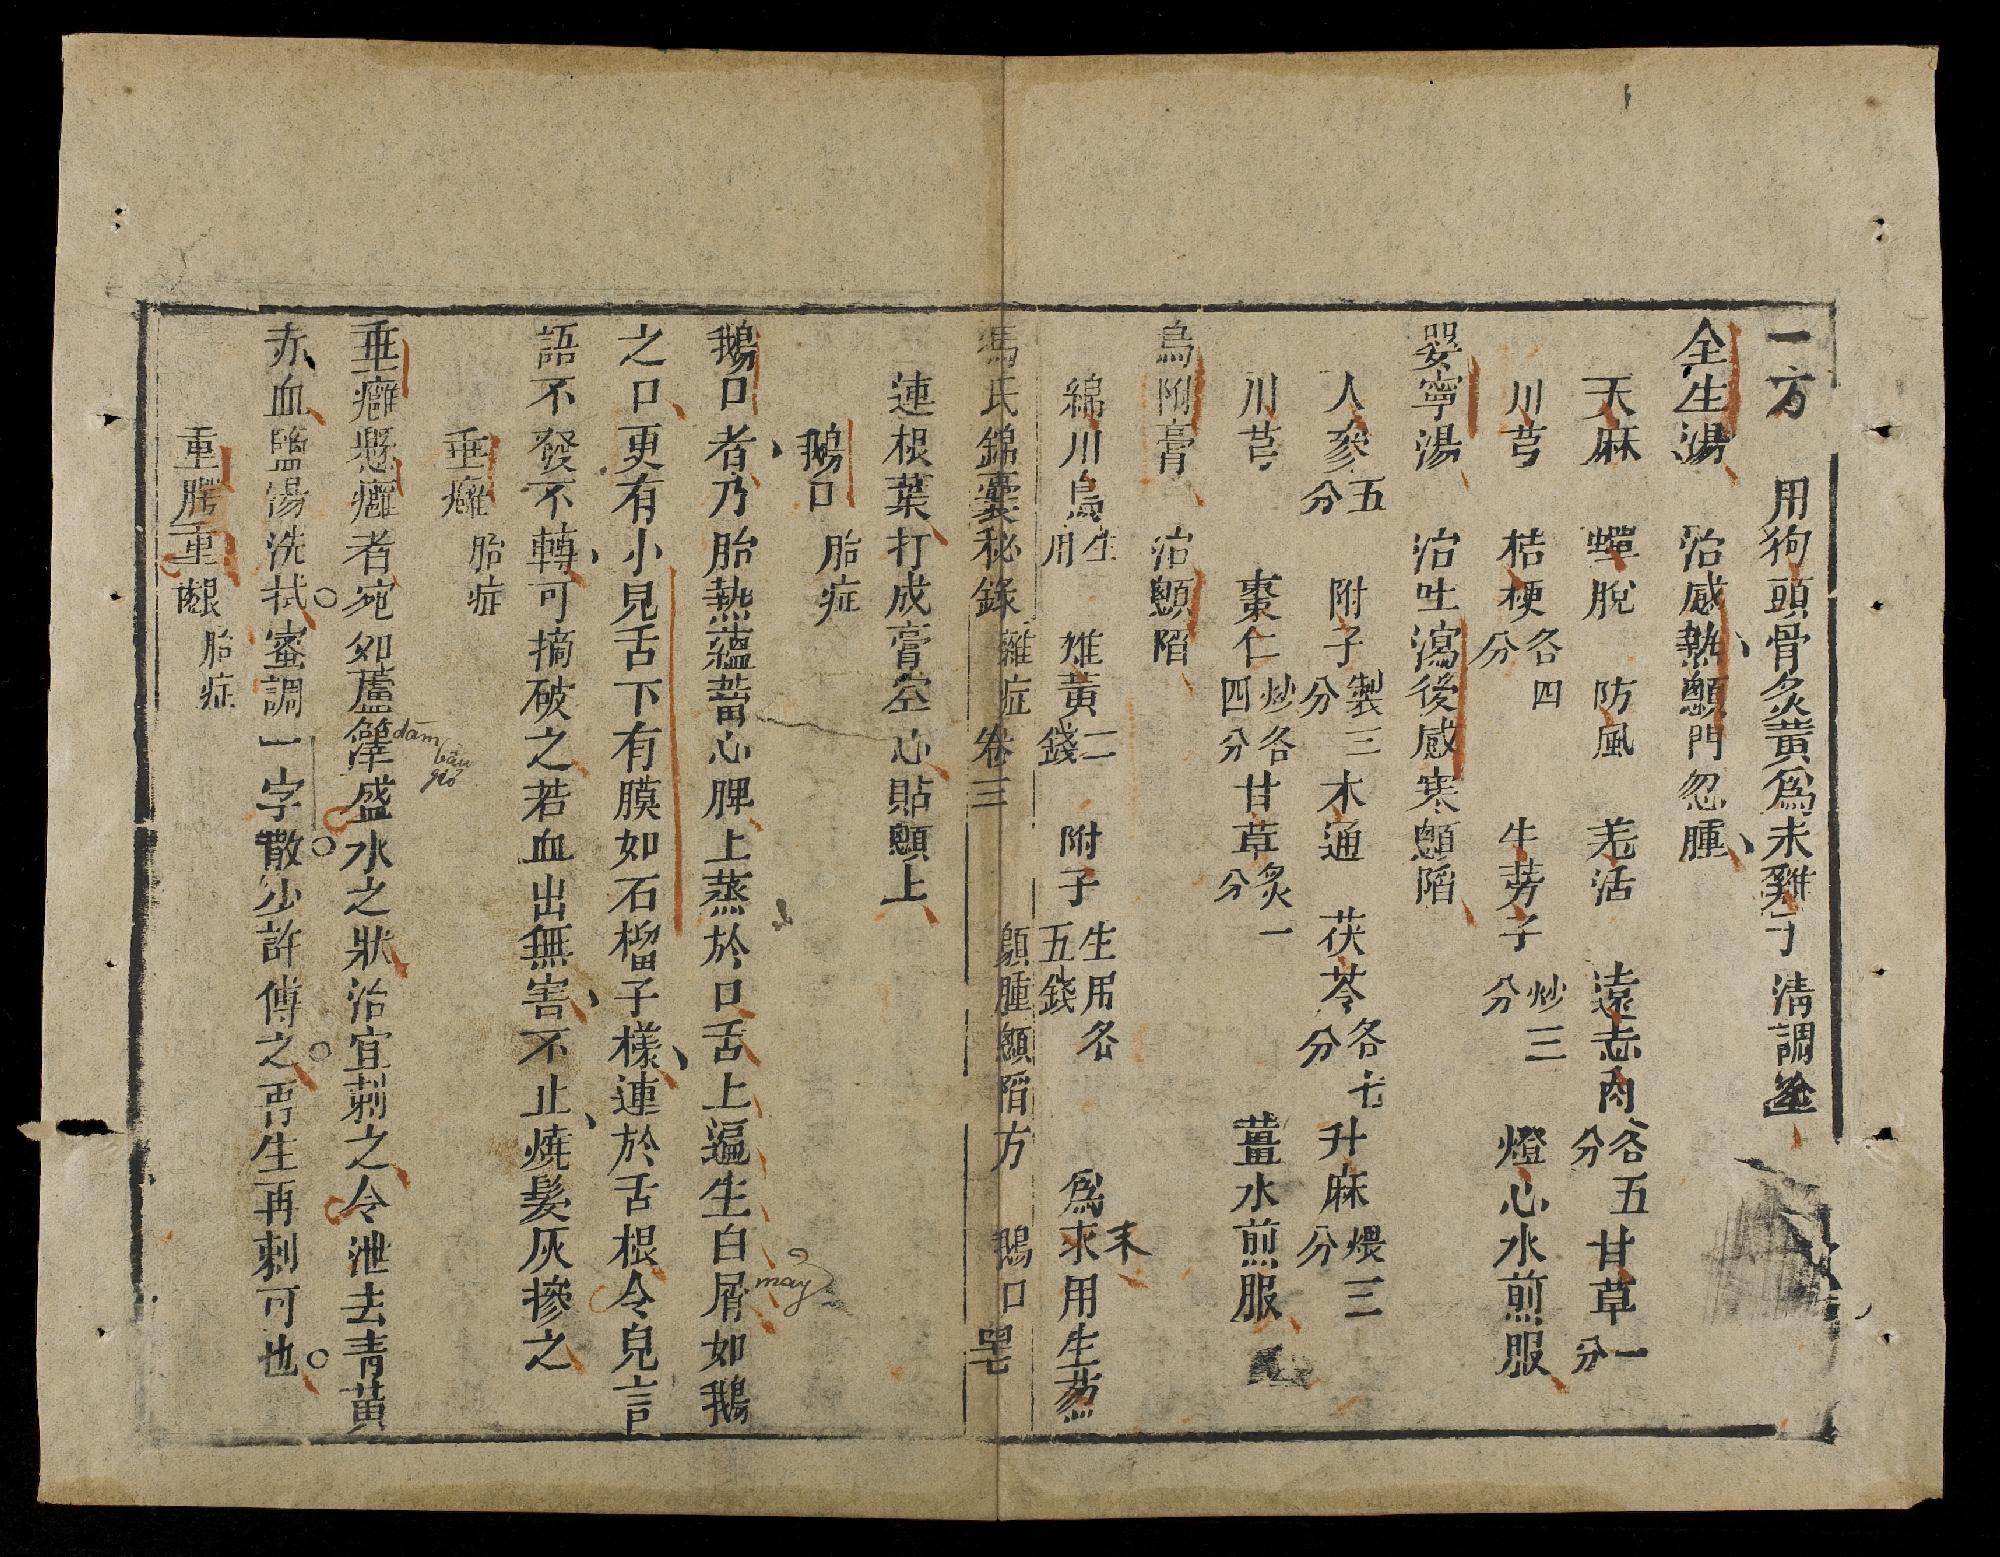 一方　用狗頭骨炙黃爲末雞子清調塗
全生湯　治感熱顖門忽腫
天麻　蟬脫　防風　羌活　遠志肉各五分　甘草一分
川芎　桔梗各四分　牛蒡子炒三分　燈心水煎服
嬰寧湯　治吐瀉後感寒顖陷
人參五分　附子製三分　木通　茯苓各七分　升麻煨三分
川芎　棗仁炒各四分　甘草炙一分　薑水煎服
烏附膏　治顖陷
綿川烏生用　雄黃二錢　附子生用各五錢　爲末用生葱
末
馮氏錦囊秘錄　雜症　卷三　顖腫顖陷方　鵝口
連根葉打成膏空心貼顖上
鵝口　胎症
鵝口者乃胎熱蘊蓄心脾上蒸於口舌上遍生白屑如鵝
may
之口更有小兒舌下有膜如石榴子樣連於舌根令兒言
語不發不轉可摘破之若血出無害不止燒髮灰摻之
垂癰　胎症
垂癰懸癰者宛如蘆籜盛水之狀治宜刺之令泄去青黃
赤血鹽湯洗拭蜜調一字散少許傅之再生再刺可也
重腭重齦　胎症